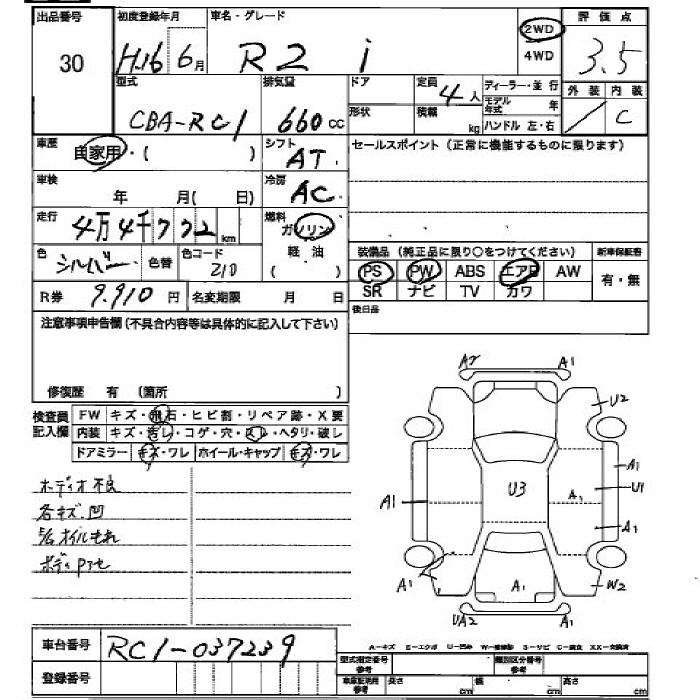 出品番号 初度登録年月 車名・グレード 2WD 評価点
30 H.16 6月 R2 i 4WD 3.5
型式 排気量 ドア 定員 4人 ディーラー・並行 外装 内装
CBA-RC1 660cc 形状 積載 kg モデル年式 年 / C
ハンドル 左・右
車歴 自家用・( ) シフト AT セールスポイント(正常に機能するものに限ります)
車検 年 月( 日) 冷房 AC
走行 4万4千772km 燃料 ガソリン
軽油
色 シルバー 色替 色コード 210 装備品(純正品に限り○をつけてください) 新車保証書
PS PW ABS エアB AW 有・無
R券 9.910円 名変期限 月 日 SR ナビ TV カワ
後日品
注意事項申告欄(不具合内容等は具体的に記入して下さい)
修復歴 有 (箇所 )
検査員記入欄 FW キズ・飛石・ヒビ割・リペア跡・X要
内装 キズ・汚レ・コゲ・穴・スレ・ヘタリ・破レ
ドアミラー キズ・ワレ ホイール・キャップ キズ・ワレ
A2 A1
U2
A1
U3 A1 U1
A1 A1
A1 A1 W2
UA2 A1
オーディオ不良
各キズ.凹
オイルもれ
車台番号 RC1-037239
A-キズ E-エクボ U-凹み W-補修跡 S-サビ C-腐食 XX-交換済
登録番号 型式指定番号参考 類別区分番号参考
車庫証明用参考 長さ cm 幅 cm 高さ cm